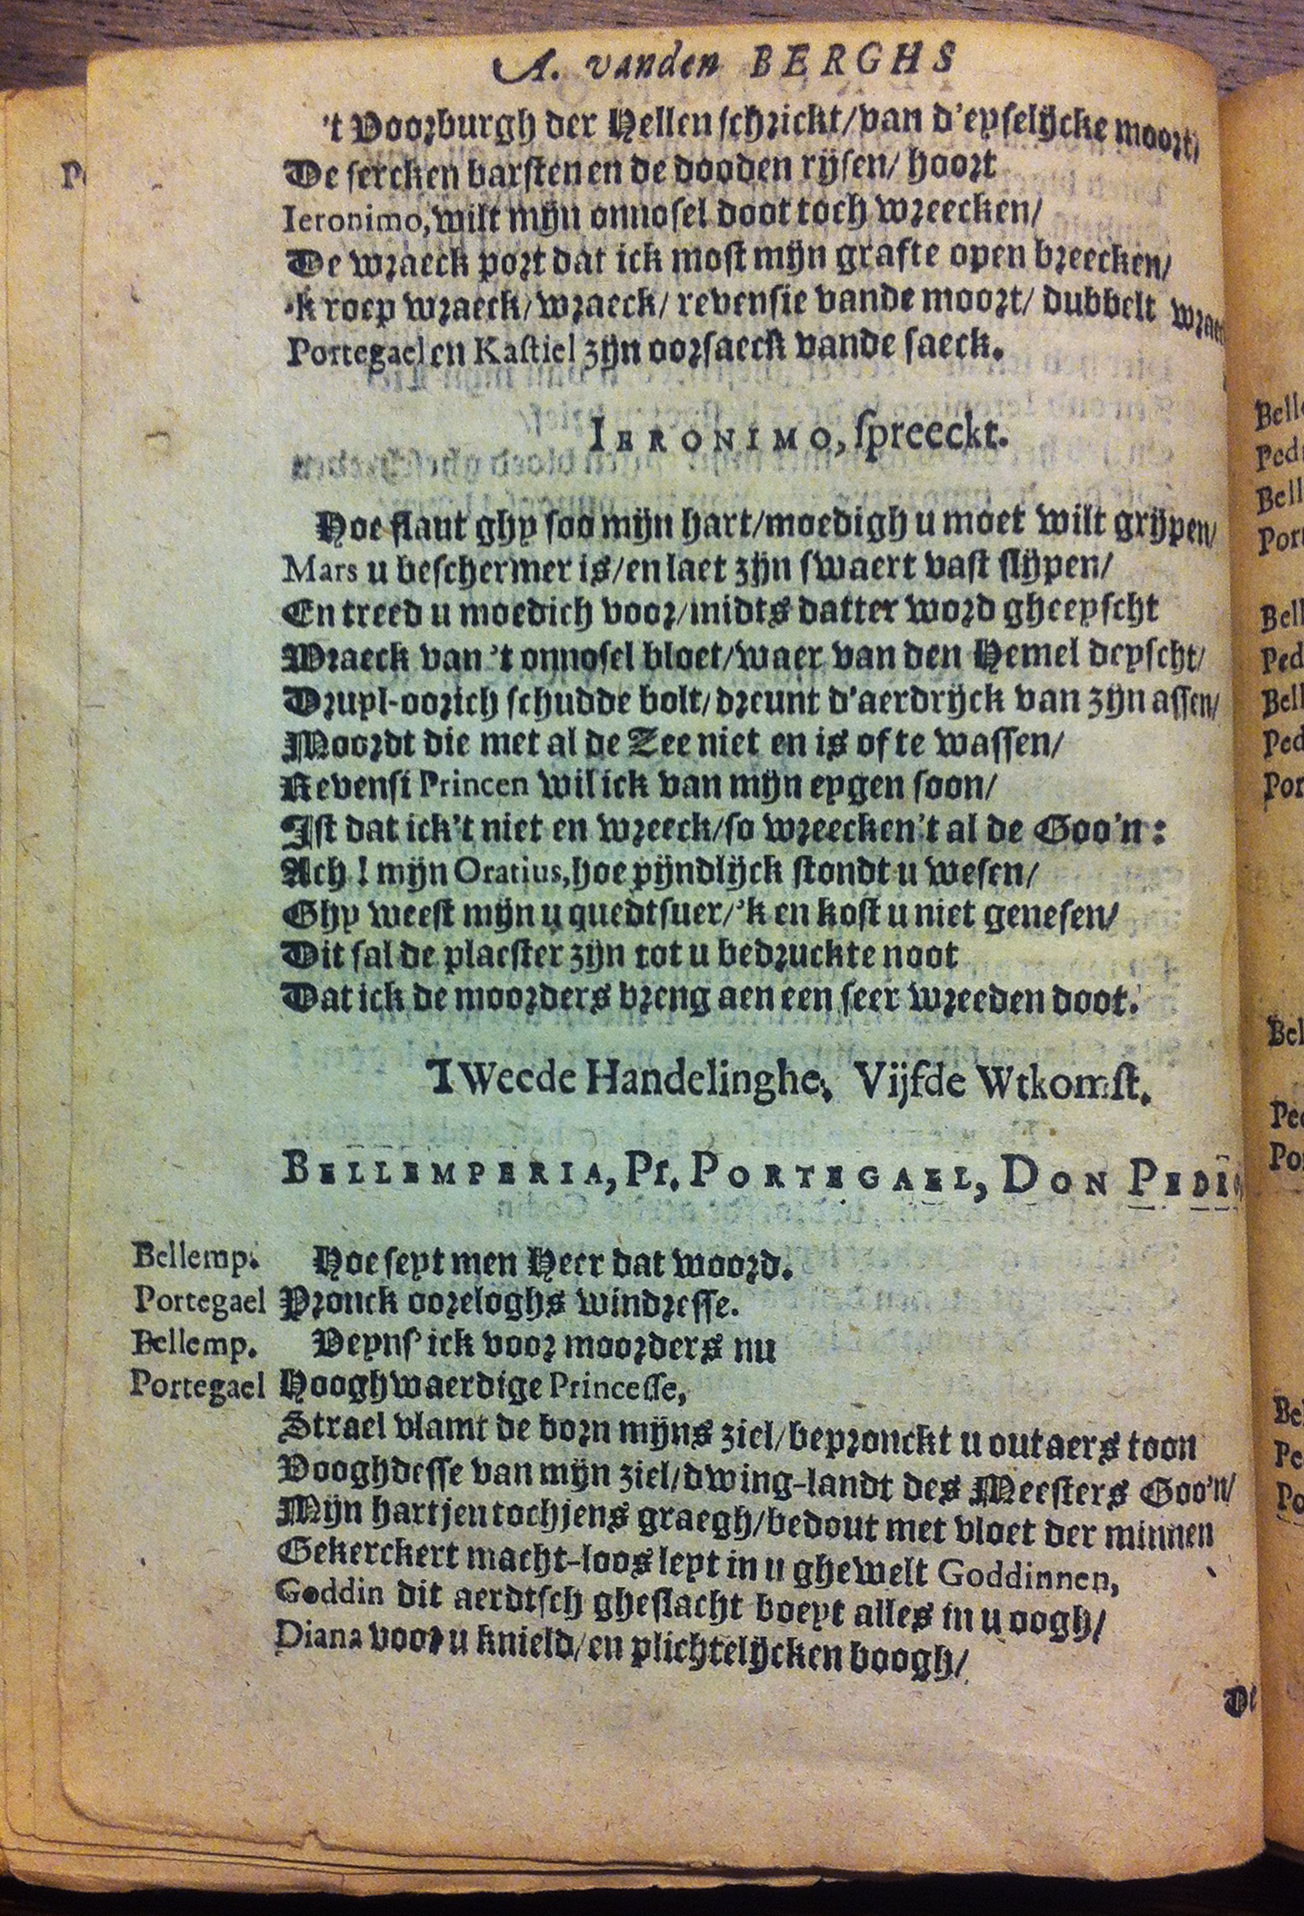 A. vanden BERGHS
't Voorburgh der Hellen schrickt/van d'eyselijcke moort/
De sercken barsten en de dooden rijsen/ hoort
Ieronimo, wilt mijn onnosel doot toch wreecken/
De wraeck port dat ick most mijn grafte open breecken/
'k roep wraeck/wraeck/ revensie vande moort/ dubbelt wraec
Portegael en Kastiel zijn oorsaeck vande saeck.
IERONIMO, spreeckt.
Hoe flaut ghy soo mijn hart/moedigh u moet wilt grijpen/
Mars u beschermer is/en laet zijn swaert vast slijpen/
En treed u moedich voor/midts datter word gheeyscht
Wraeck van 't onnosel bloet/waer van den Hemel deyscht/
Druyl-oorich schudde bolt/dreunt d'aerdrijck van zijn assen/
Moordt die met al de Zee niet en is of te wassen/
Revensi Princen wil ick van mijn eygen soon/
Ist dat ick't niet en wreeck/so wreecken't al de Goo'n:
Ach! mijn Oratius, hoe pijndlijck stondt u wesen/
Ghy weest mijn u quedtsuer/'k en kost u niet genesen/
Dit sal de plaester zijn tot u bedruckte noot
Dat ick de moorders breng aen een seer wreeden doot.
TWeede Handelinghe, Vijfde Wtkomst.
BELLEMPERIA, Pr. PORTEGAEL, DON PEDRO,
Bellemp. Hoe seyt men Heer dat woord.
Portegael Pronck oorloghs windresse.
Bellemp. Veyns' ick voor moorders nu
Portegael Hooghwaerdige Princesse,
Strael vlamt de born mijns ziel/bepronckt u outaers toon
Vooghdesse van mijn ziel/dwing-landt des Meesters Goo'n/
Mijn hartjen tochjens graegh/bedout met vloet der minnen
Gekerckert macht-loos leyt in u ghewelt Goddinnen,
Goddin dit aerdtsch gheslacht boeyt alles in u oogh/
Diana voor u knield/en plichtelijcken boogh/
De